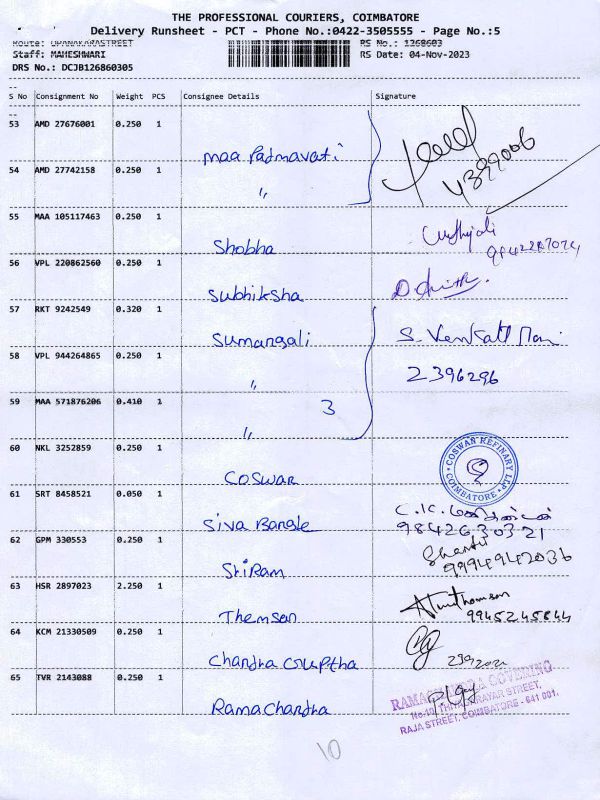 THE PROFESSIONAL COURIERS, COIMBATORE
Delivery Runsheet - PCT - Phone No.:0422-3505555 - Page No.:5
Route: UPANAKARASTREET RS No.: 1268603
Staff: MAHESHWARI RS Date: 04-Nov-2023
DRS No.: DCJB126860305
S No Consignment No Weight PCS Consignee Details Signature
53 AMD 27676001 0.250 1
maa Padmavati
4399006
54 AMD 27742158 0.250 1
"
55 MAA 105117463 0.250 1
Shobha
56 VPL 220862560 0.250 1
Subhiksha
57 RKT 9242549 0.320 1
Sumangali S. Venkatt Mani
58 VPL 944264865 0.250 1
" 2396296
59 MAA 571876206 0.410 1
3
"
60 NKL 3252859 0.250 1
COSWAN REFINARY LLP
COIMBATORE
Coswan
61 SRT 8458521 0.050 1
Siva Bangle
9842630321
62 GPM 330553 0.250 1
Shanti
SriRam 9994942036
63 HSR 2897023 2.250 1
Themson 9945245844
64 KCM 21330509 0.250 1
Chandra Gruptha
65 TVR 2143088 0.250 1
RamaChandra
RAMACHANDRA COVERING
RAJA STREET, COIMBATORE - 641 001.
10